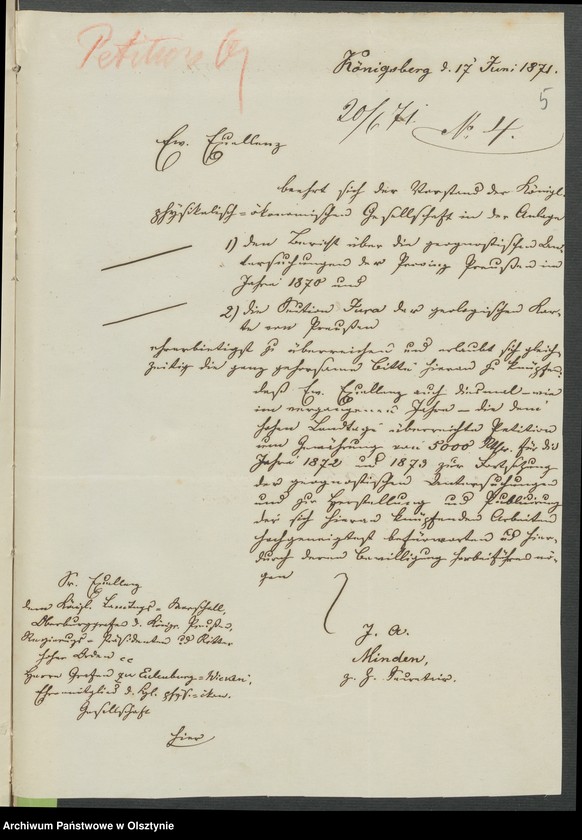 Petitions
Königsberg d. 17 Juni 1871.
5
20/6 71. No. 4.
Ew. Excellenz
beehrt sich der Vorstand der Königl.
physikalisch=ökonomischen Gesellschaft in der Anlage
1) den Bericht über die geognostischen Un-
tersuchungen der Provinz Preußen im
Jahre 1870 und
2) die Section Jura der geologischen Kar-
te von Preußen
ehrerbietigst zu überreichen und erlaubt sich gleich-
zeitig die ganz gehorsame Bitte hieran zu knüpfen
daß Ew. Excellenz auch diesmal – wie
im vergangenen Jahre – die dem
hohen Landtage überreichte Petition
um Gewährung von 5000 Rthr. für die
Jahre 1872 und 1873 zur Fortsetzung
der geognostischen Untersuchungen
und zur Herstellung und Publicirung
der sich hieran knüpfenden Arbeiten
hochgeneigtest befürworten und hier-
durch deren Bewilligung herbeiführen mö-
gen
J. A.
Minden,
z. Z. Secretair.
Sr. Excellenz
dem Königl. Landtags=Marschall,
Oberburggrafen d. Königr. Preußen,
Regierungs=Präsidenten und Ritter
hoher Orden cc
Herrn Grafen zu Eulenburg=Wicken,
Ehrenmitglied d. kgl. phys.=ökon.
Gesellschaft
hier
Archiwum Państwowe w Olsztynie